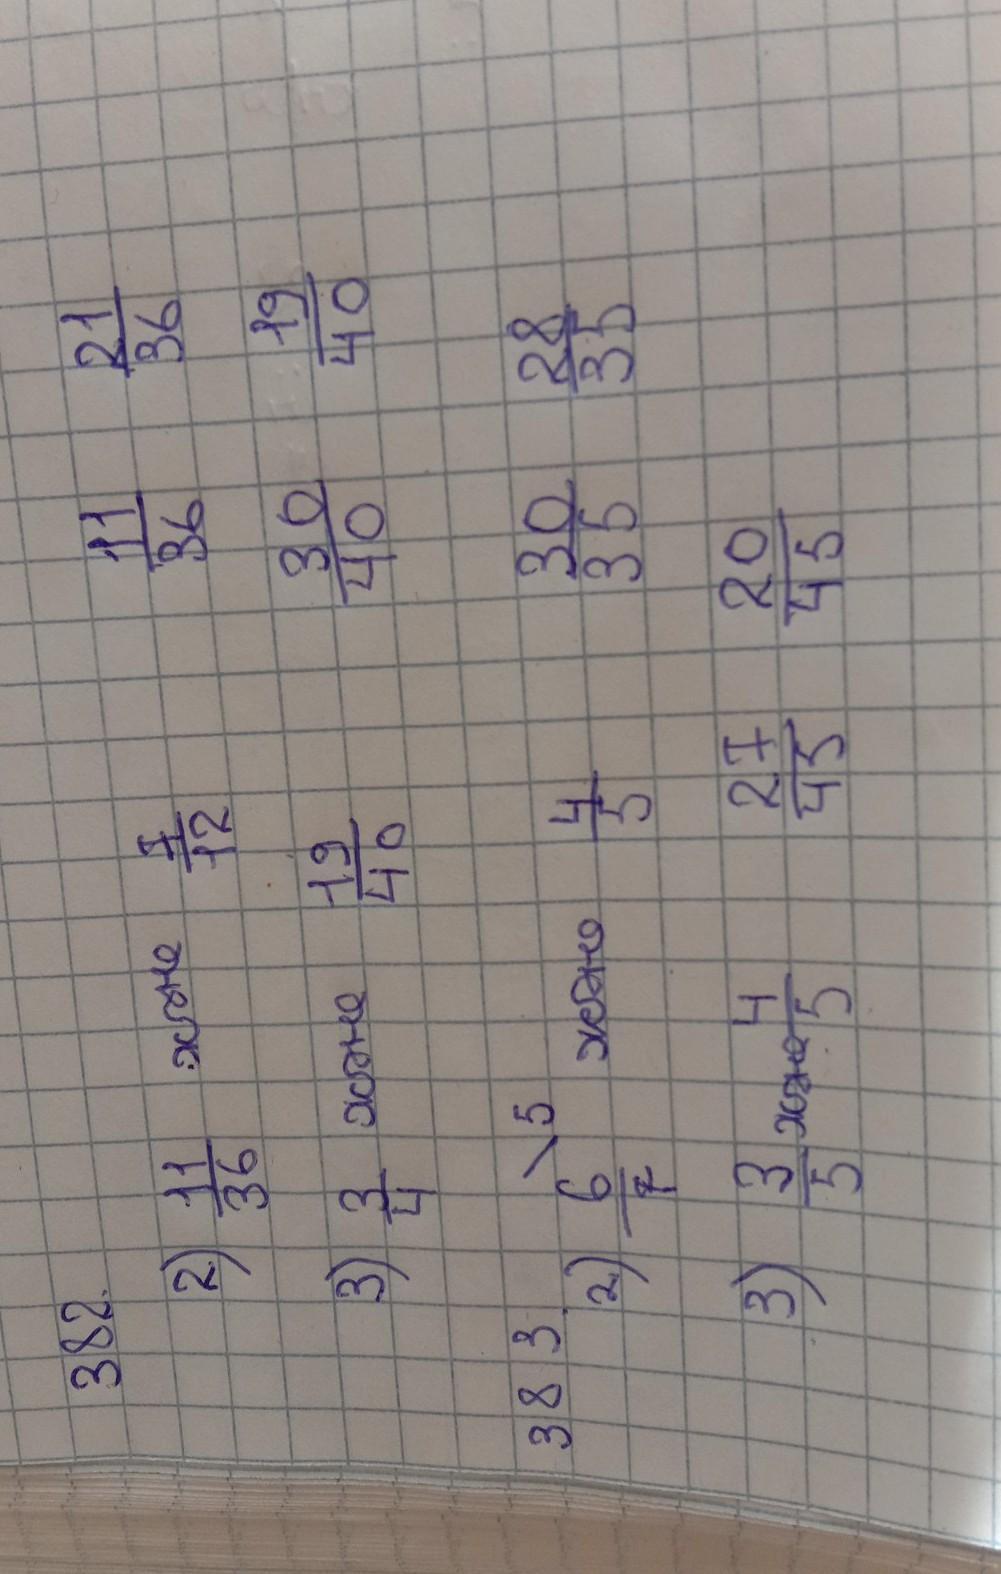 382.
2) 11/36 және 7/12 11/36 21/36
3) 3/4 және 19/40 30/40 19/40
383.
2) 6/7 \5 және 4/5 30/35 28/35
3) 3/5 және 4/5 27/45 20/45